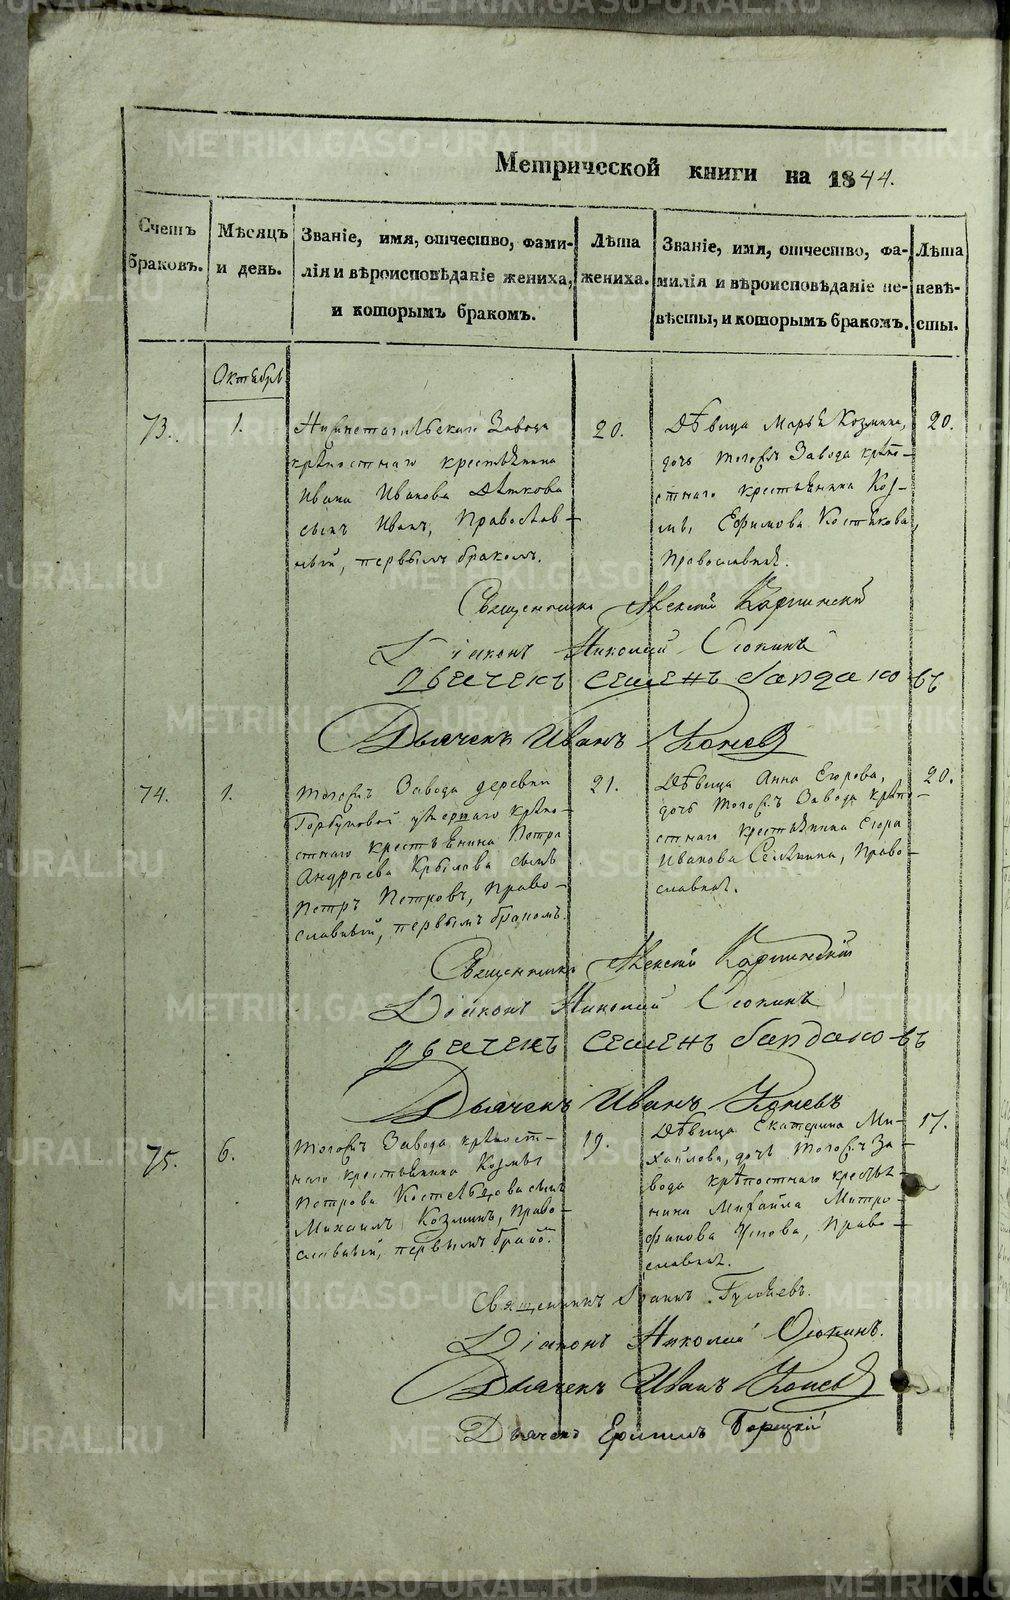 Метрической книги на 1844.
Счетъ браковъ.
Мѣсяцъ и день.
Званіе, имя, отчество, фами-
лія и вѣроисповѣданіе жениха,
и которымъ бракомъ.
Лѣта
жениха.
Званіе, имя, отчество, фа-
милія и вѣроисповѣданіе не-
вѣсты, и которымъ бракомъ.
Лѣта
невѣ-
сты.
Октябрь
73.
1.
Нижнетагильскаго Завода
крѣпостнаго крестьянина
Ивана Иванова Дѣткова
сынъ Иванъ, Православ-
ный, первымъ бракомъ.
20.
Дѣвица Марья Козмина,
дочь тогожъ Завода крѣпо-
стнаго крестьянина Коз-
мы Ефимова Костикова,
православная.
20.
Священникъ Алексій Карпинскій
Діаконъ Николай Осокинъ
Дьячекъ Семенъ
Дьячекъ Иванъ Конев
74.
1.
тогожъ Завода деревни
Горбуновой умершаго крѣпо-
стнаго крестьянина Петра
Андреева Крылова сынъ
Петръ Петровъ, Право-
славный, первымъ бракомъ.
21.
Дѣвица Анна Егорова,
дочь тогожъ Завода крѣпо-
стнаго крестьянина Егора
Иванова Селянина, Право-
славная.
20.
Священникъ Алексій Карпинскій
Діаконъ Николай Осокинъ
Дьячекъ Семенъ
Дьячекъ Иванъ Коневъ
75.
6.
тогожъ Завода крѣпост-
наго крестьянина Козмы
Петрова сынъ
Михаилъ Козминъ, Право-
славный, первымъ брако.
19.
Дѣвица Екатерина Ми-
хайлова, дочь тогожъ За-
вода крѣпостнаго крестья-
нина Михаила Митро-
фанова Право-
славная.
17.
Священникъ Іоаннъ
Діаконъ Николай Осокинъ.
Дьячекъ Иванъ Конев
Дьячекъ
METRIKI.GASO-URAL.RU